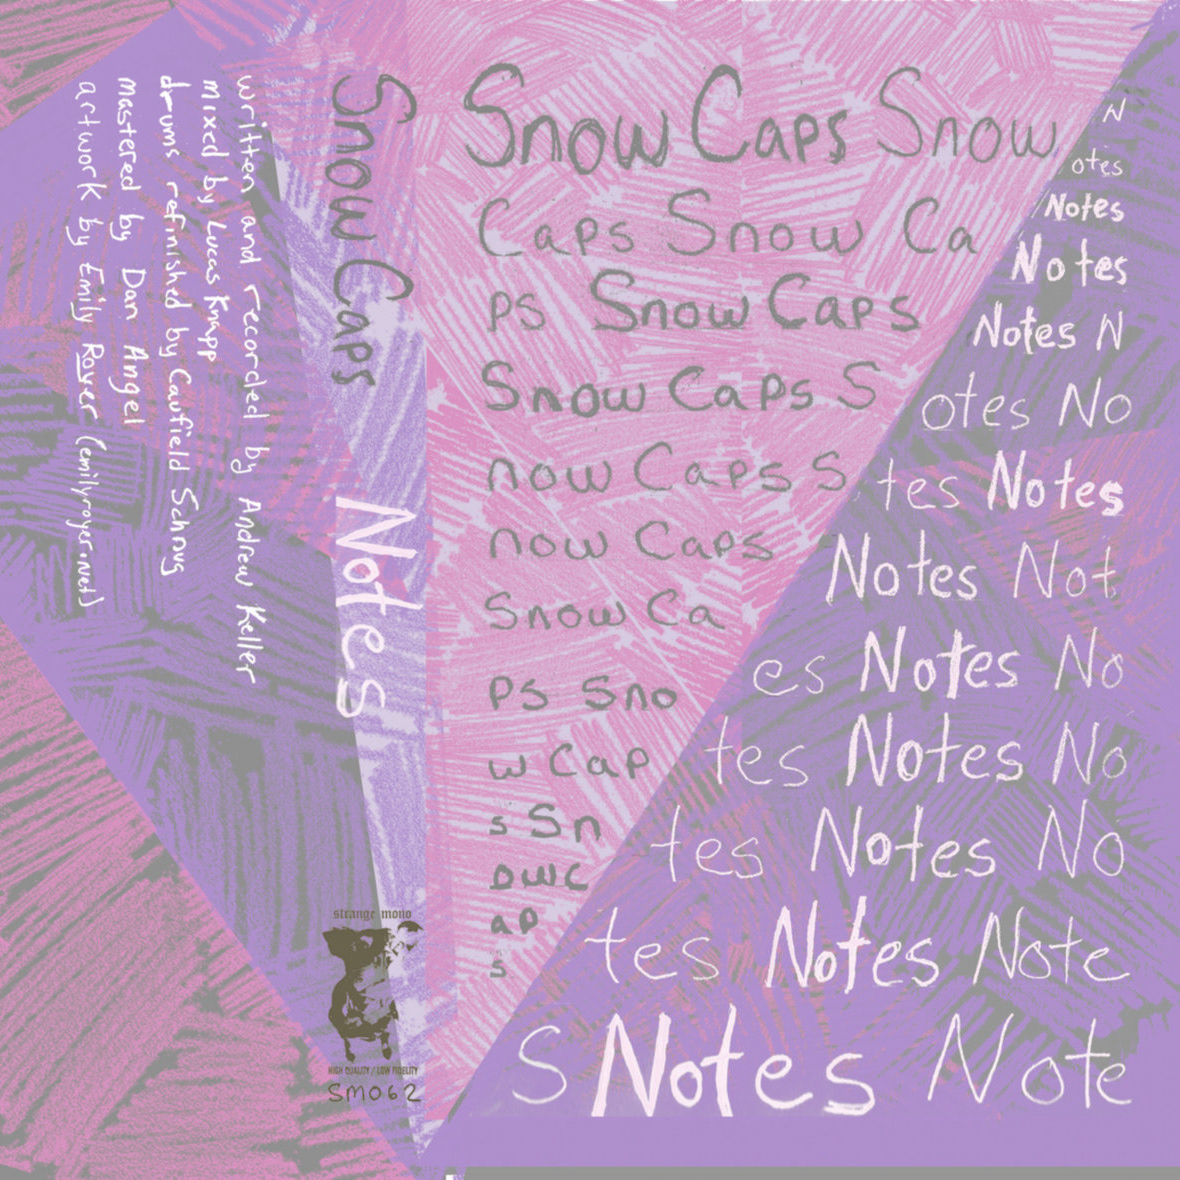 written and recorded by Andrew Keller
mixed by Lucas Knapp
drums refinished by Caufield Schnug
mastered by Dan Angel
artwork by Emily Royer (emilyroyer.net)
Snow Caps
Notes
strange mono
HIGH QUALITY / LOW FIDELITY
SM062
Snow Caps Snow
Caps Snow Ca
ps Snow Caps
Snow Caps S
now Caps S
now Caps
Snow Ca
ps Sno
w Cap
s Sn
owc
ap
s
N
otes
Notes
Notes
Notes N
otes No
tes Notes
Notes Not
es Notes No
tes Notes No
tes Notes No
tes Notes Note
S Notes Note